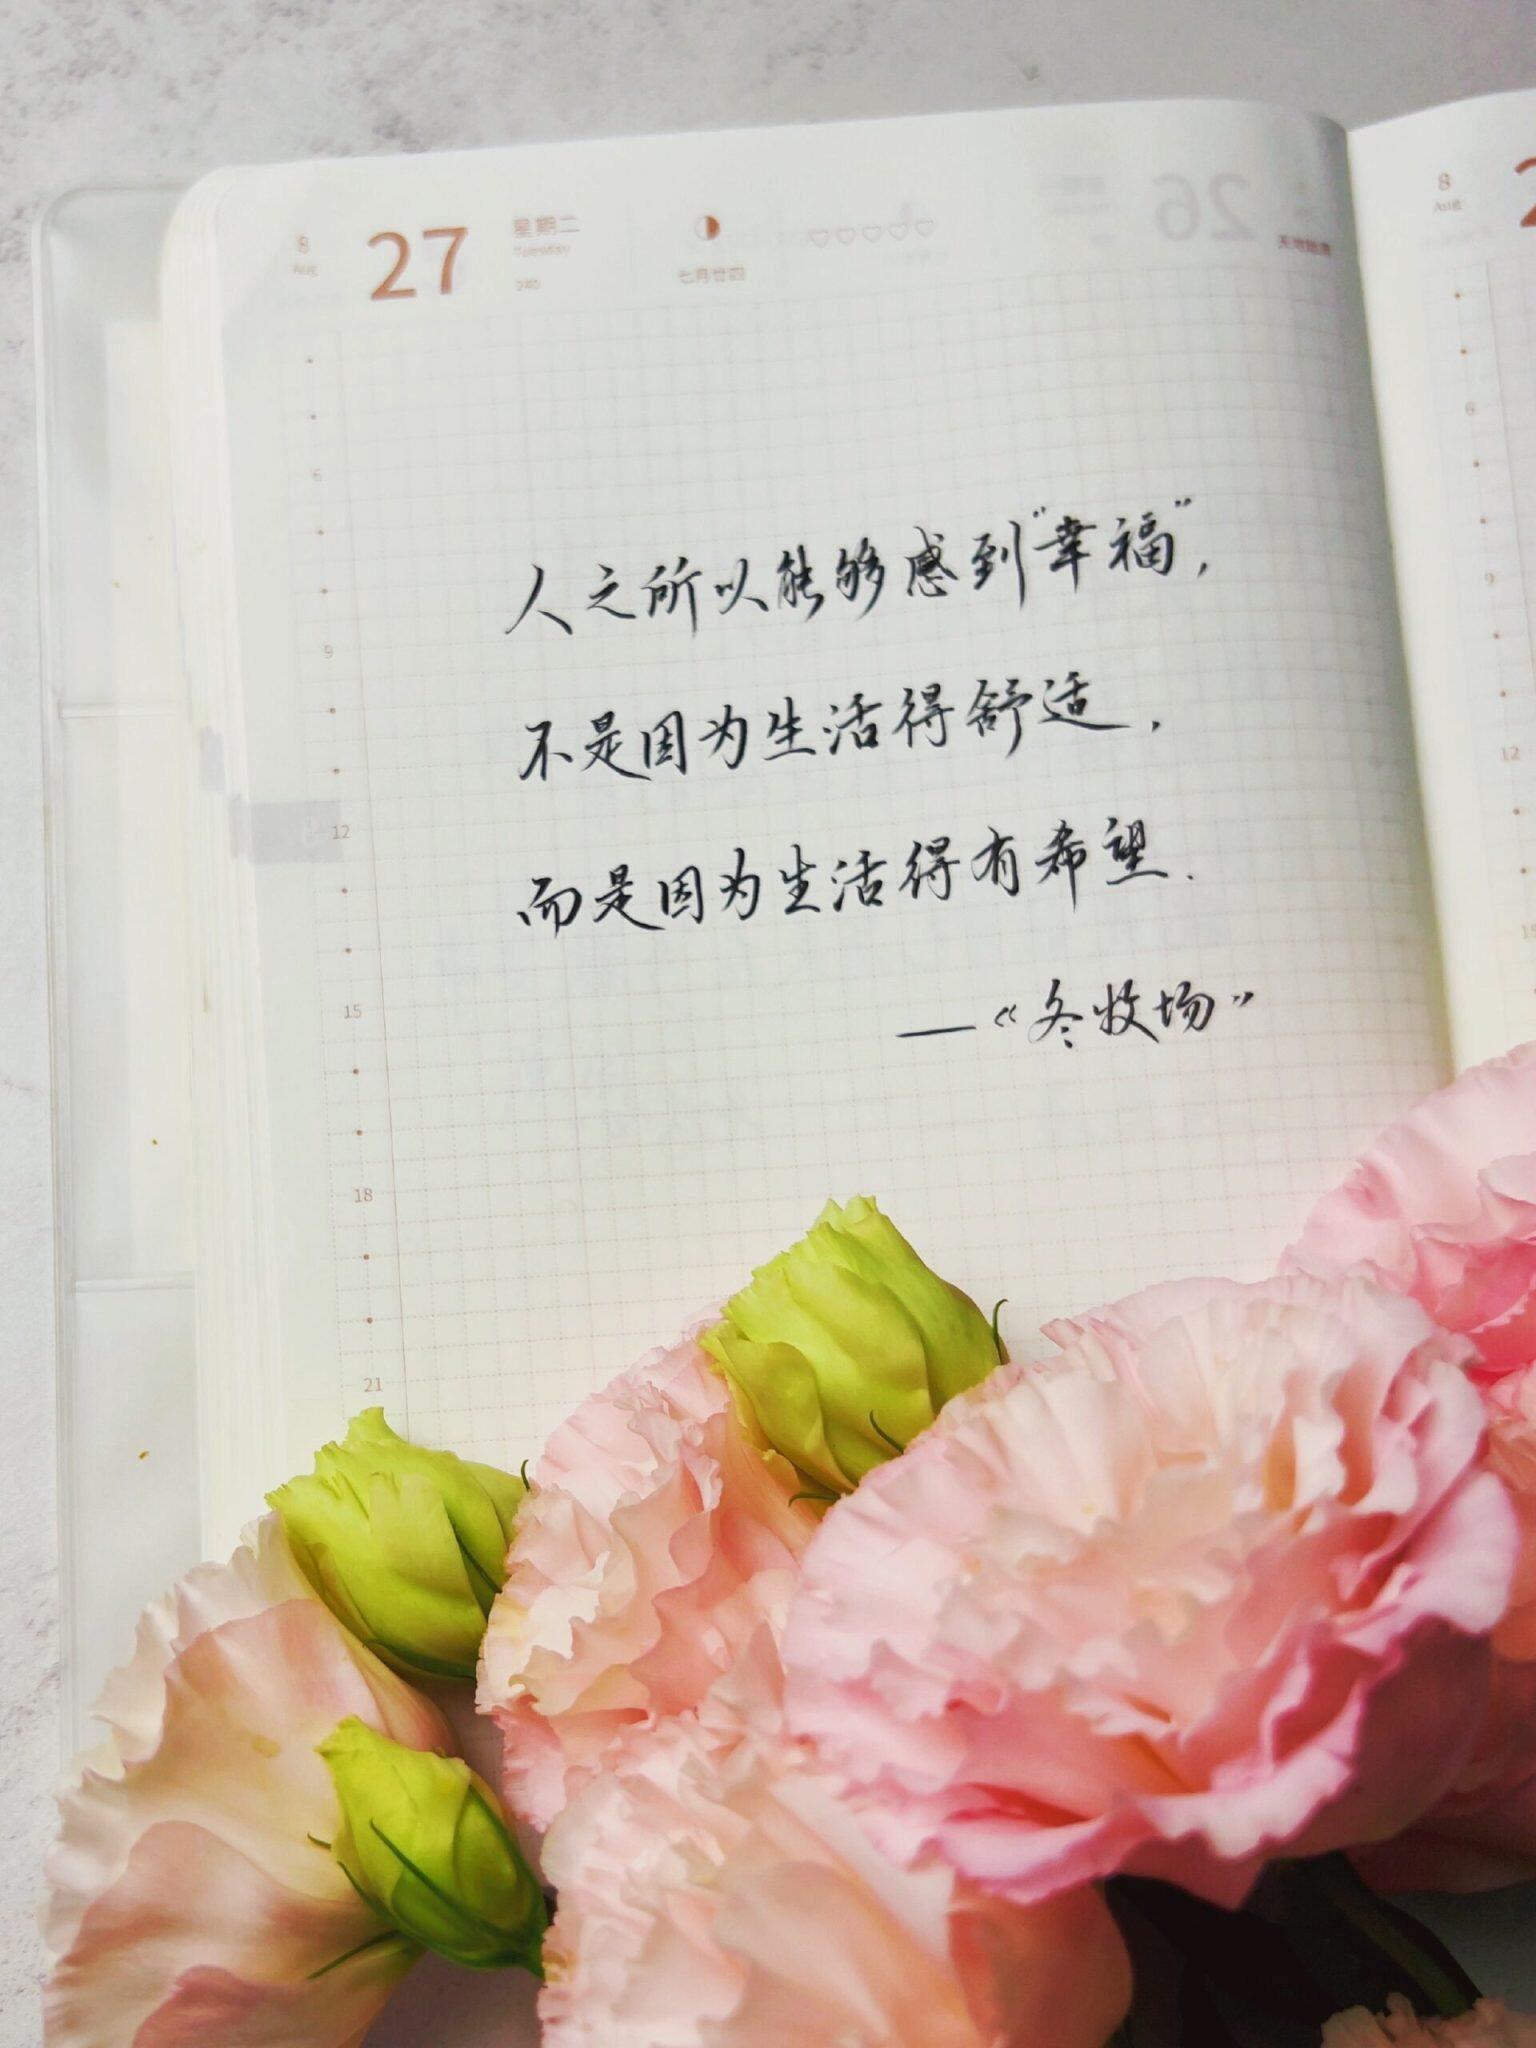 8
Aug
27
星期二
Tuesday
240
七月廿四
26
8
Aug
6
9
12
15
18
21
人之所以能够感到“幸福”,
不是因为生活得舒适,
而是因为生活得有希望.
—《冬牧场》
6
9
12
15